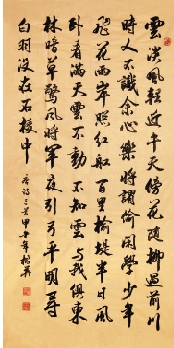 雲淡風輕近午天傍花隨柳過前川
時人不識余心樂將謂偷閑學少年
飛花兩岸照紅船百里榆堤半日風
卧看滿天雲不動不知雲與我俱東
林暗草驚風將軍夜引弓平明尋
白羽沒在石棱中